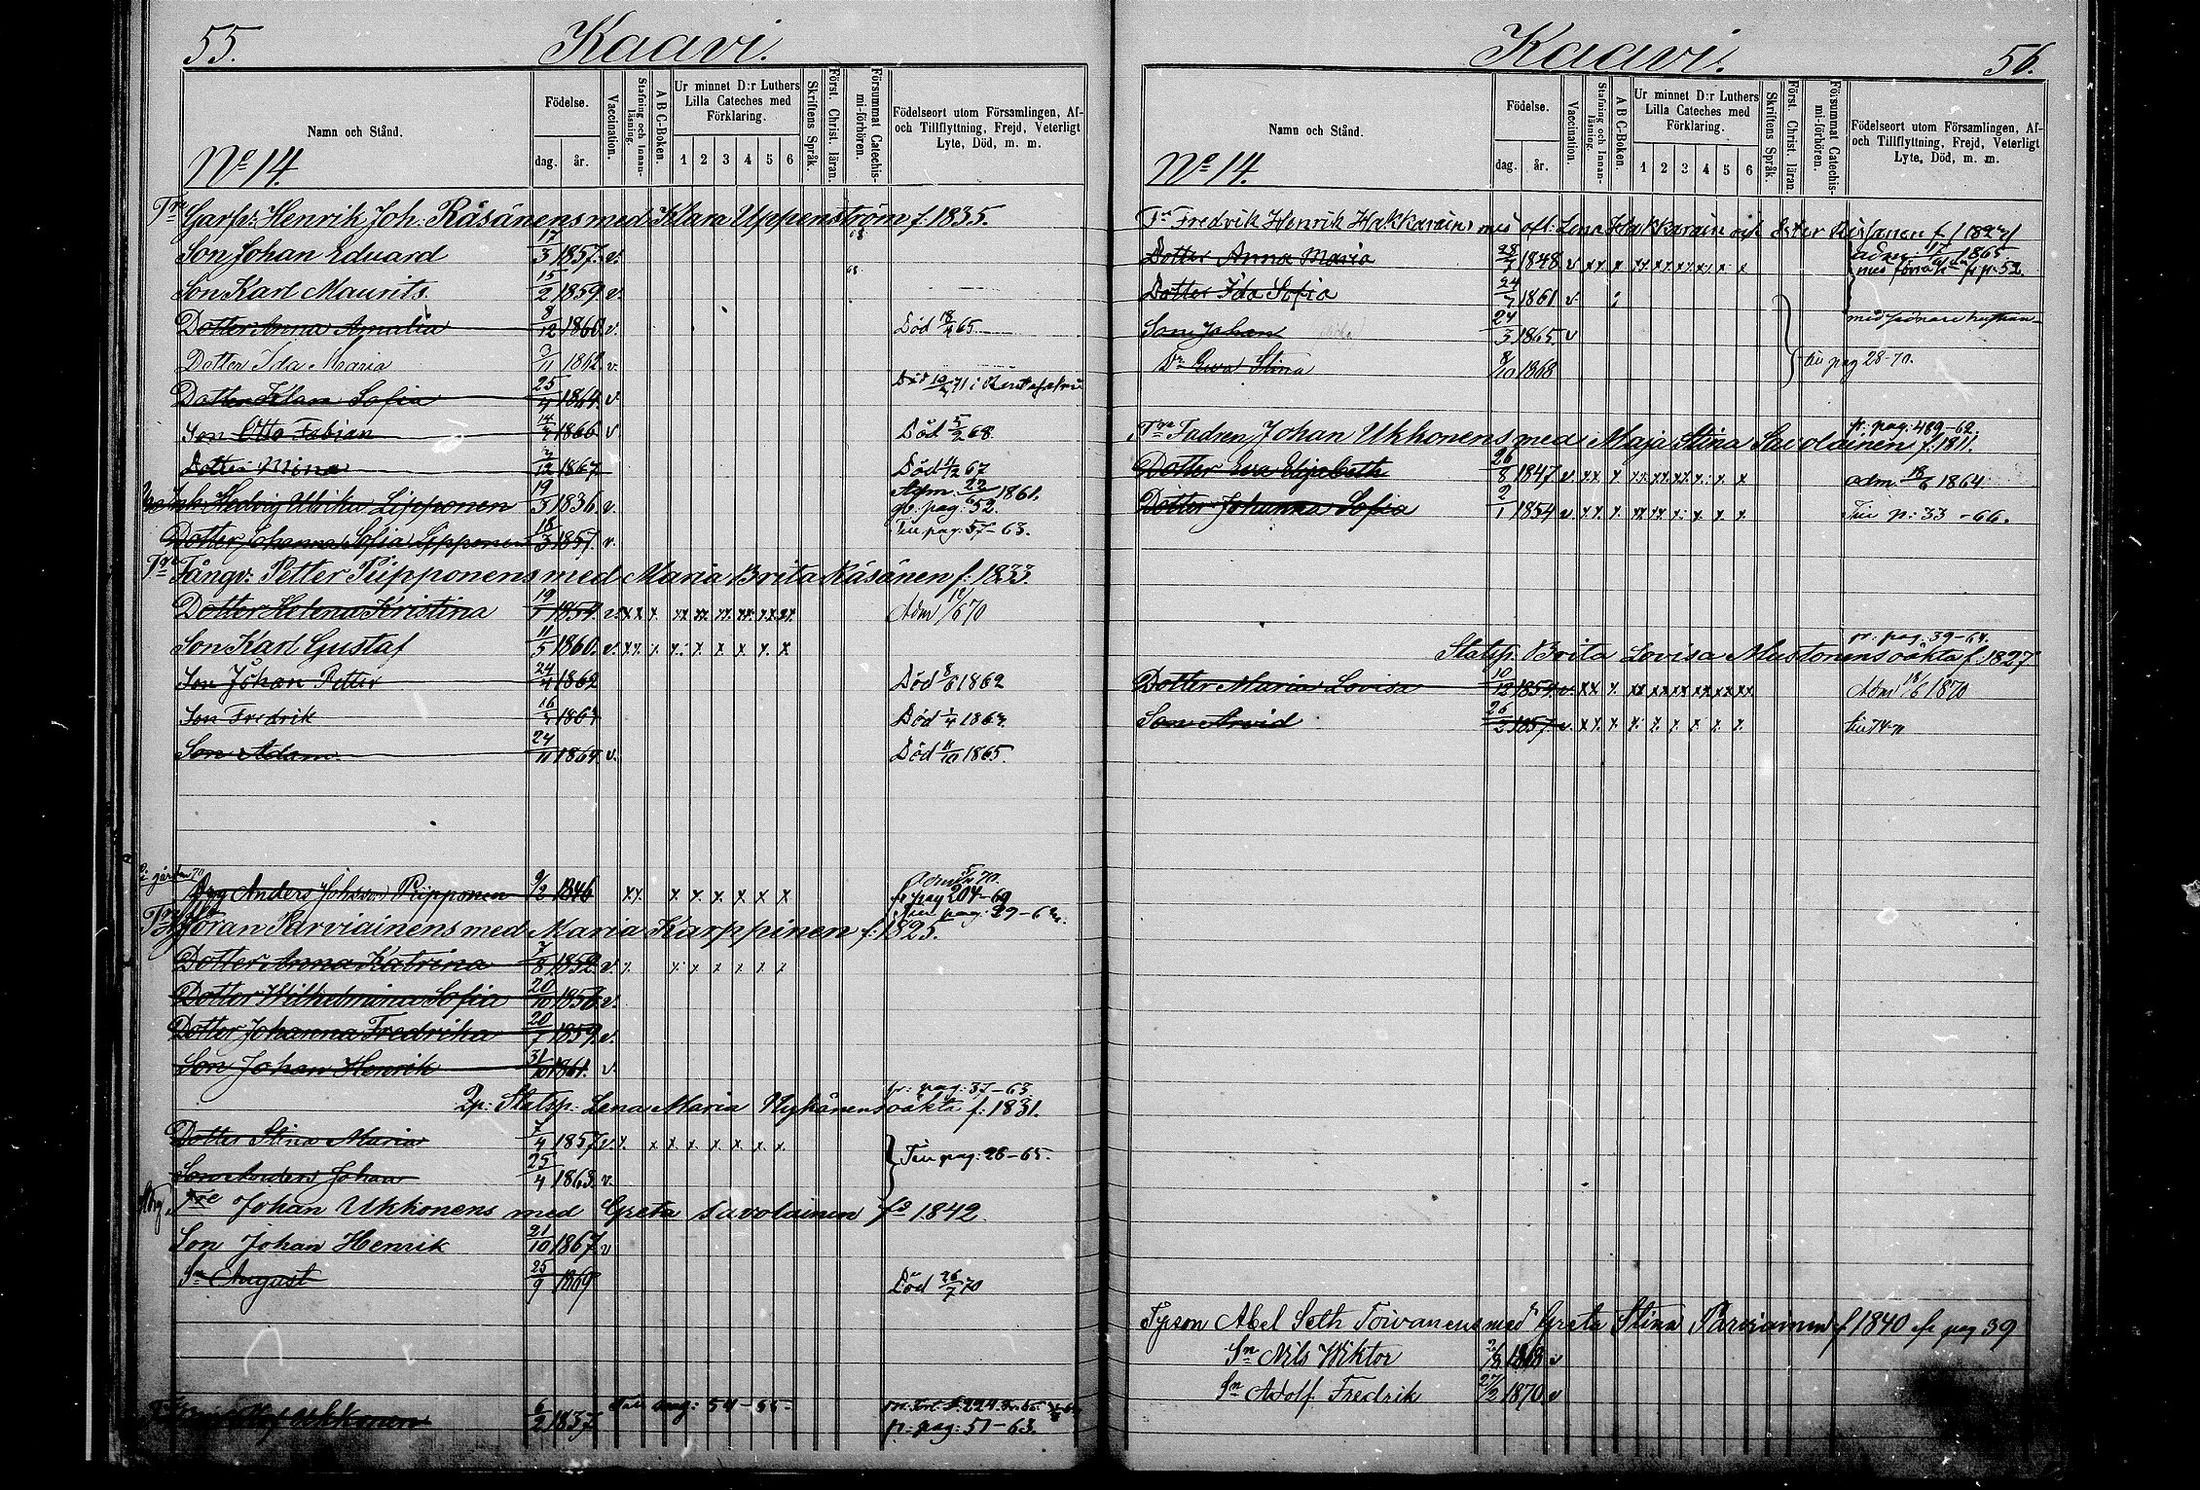 55.
Kaavi.
Namn och Stånd.
Födelse.
dag.
år.
Vaccination.
Stafning och Innan-läsning.
A B C-Boken.
Ur minnet D:r Luthers Lilla Cateches med Förklaring.
1 2 3 4 5 6
Skriftens Språk.
Först. Christ. läran.
Försummat Catechis-mi-förhören.
Födelseort utom Församlingen, Af- och Tillflyttning, Frejd, Veterligt Lyte, Död, m. m.
No 14.
Garfv: Henrik Joh. Räsänens med Klara Uppenström f. 1835.
Son Johan Eduard 17/3 1857. v.
Son Karl Maurits. 15/2 1859 v.
Dotter Anna Amalia /12 1860. v. Död 18/4 65
Dotter Ida Maria 3/11 1862 v.
Dotter Klara Sofia 25/4 1864. v. Död 10/4 71
Son Otto Fabian 14/4 1866 v Död 5/2 68
Dotter Mina /12 1867 Död 4/2 67
Hedvig Ulrika Lipponen 19/5 1836 v. 1861. pag: 52.
Dotter Johanna Sofia Lipponen 18/3 1857. v. pag: 57-63.
Petter Piipponens med Maria Brita Räsänen f: 1833.
Dotter Helena Kristina 19 1854 v. x x x. xx xx. xx. xx. xx xx. Adm /6 70
Son Karl Gustaf 11/5 1860. v. x x. x x. x x x x. x
Son Johan Petter 24/4 1862 Död 8/6 1862
Son Fredrik 16 Död 1/4
Son Adam 24/11 1864 v. Död 11/10 1865
Anders Johsson Piipponen 9/2 1846 x x. x x x. x x x 70. fr pag 204-69
Göran Parviainens med Maria Karppinen f: 1825. pag: 29-6
Dotter Anna Katrina 7/8 1852 v. x. x. x x x. x. x
Dotter Wilhelmina Sofia 20/10 1856 v.
Dotter Johanna Fredrika 20/7 1859. v.
Son Johan Henrik 31/10 1861. v.
Statsp: Lena Maria Nykänens oäkta f: 1831. fr: pag: 37-63
Dotter Stina Maria 7/4 1857 v x. x x x x x x. x.
Son Anders Johan 25/4 1863. v. pag: 28-65.
Johan Ukkonens med Greta Savolainen fd 1842.
Son Johan Henrik 21/10 1867. v
Sn August 25/9 1869 Död 26/7 70
Ukkonen 6/2 1837. pag: 54-55.
fr: pag: 51-63.
Kaavi.
56.
Namn och Stånd.
Födelse.
dag.
år.
Vaccination.
Stafning och Innan-läsning.
A B C-Boken.
Ur minnet D:r Luthers Lilla Cateches med Förklaring.
1 2 3 4 5 6
Skriftens Språk.
Först. Christ. läran.
Försummat Catechis-mi-förhören.
Födelseort utom Församlingen, Af- och Tillflyttning, Frejd, Veterligt Lyte, Död, m. m.
No 14.
Fredrik Henrik Hakkarains med Lena Hakkarain och Ester
Dotter Anna Maria 1848 v xx x xx xx xx x x x 1865
Dotter Ida Sofia 24/7 1861 v. p: 52
Son Johan 24/3 1865. v
Dr Eva Stina 8/10 1868 pag 28-70.
fr: pag: 489-62.
Johan Ukkonens med Maja Stina Savolainen f. 1811.
Dotter Eva Elisabeth 26/8 1847 v. xx x xx xx xx x. x x adm 18/6 1864
Dotter Johanna Sofia 2/1 1854 v xx. x. xx xx. x. x x. x p: 33-66.
fr: pag: 39-64.
Statsp: Brita Lovisa Mustonens oäkta f. 1827
Dotter Maria Lovisa 10/12 1854 v. xx x. xx xx xx xx xx xx Adm 18/6 1870
Son Arvid 26 1857. v. x x. x. x. x. x. x x. x.
Abel Seth Toivanens med Greta Stina Parviainen f 1840 pag 39
Sn Nils Wiktor 1868 v
Sn Adolf Fredrik 27/2 1870. v